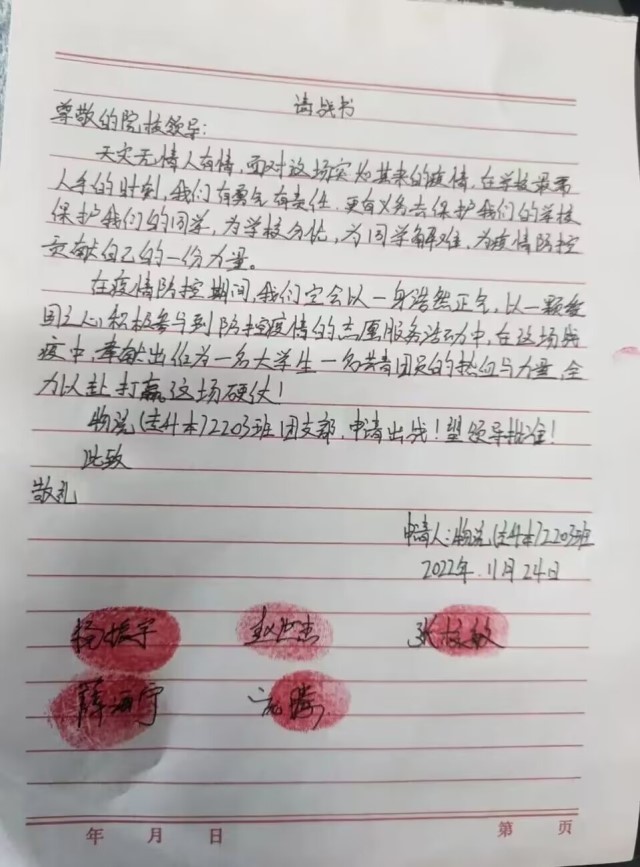 请战书
尊敬的院校领导:
天灾无情人有情,面对这场突如其来的疫情,在学校最需
人手的时刻,我们有勇气有责任,更有义务去保护我们的学校
保护我们的同学,为学校分忧,为同学解难,为疫情防控
贡献自己的一份力量。
在疫情防控期间,我们定会以一身浩然正气,以一颗爱
国之心积极参与到防控疫情的志愿服务活动中,在这场战
疫中,奉献出作为一名大学生一名共青团员的热血与力量,全
力以赴打赢这场硬仗!
物流(专升本)2203班团支部,申请出战!望领导批准!
此致
敬礼
申请人:物流(专升本)2203班
2022年.11月24日
杨振宇
张枝敏
年 月 日 第 页